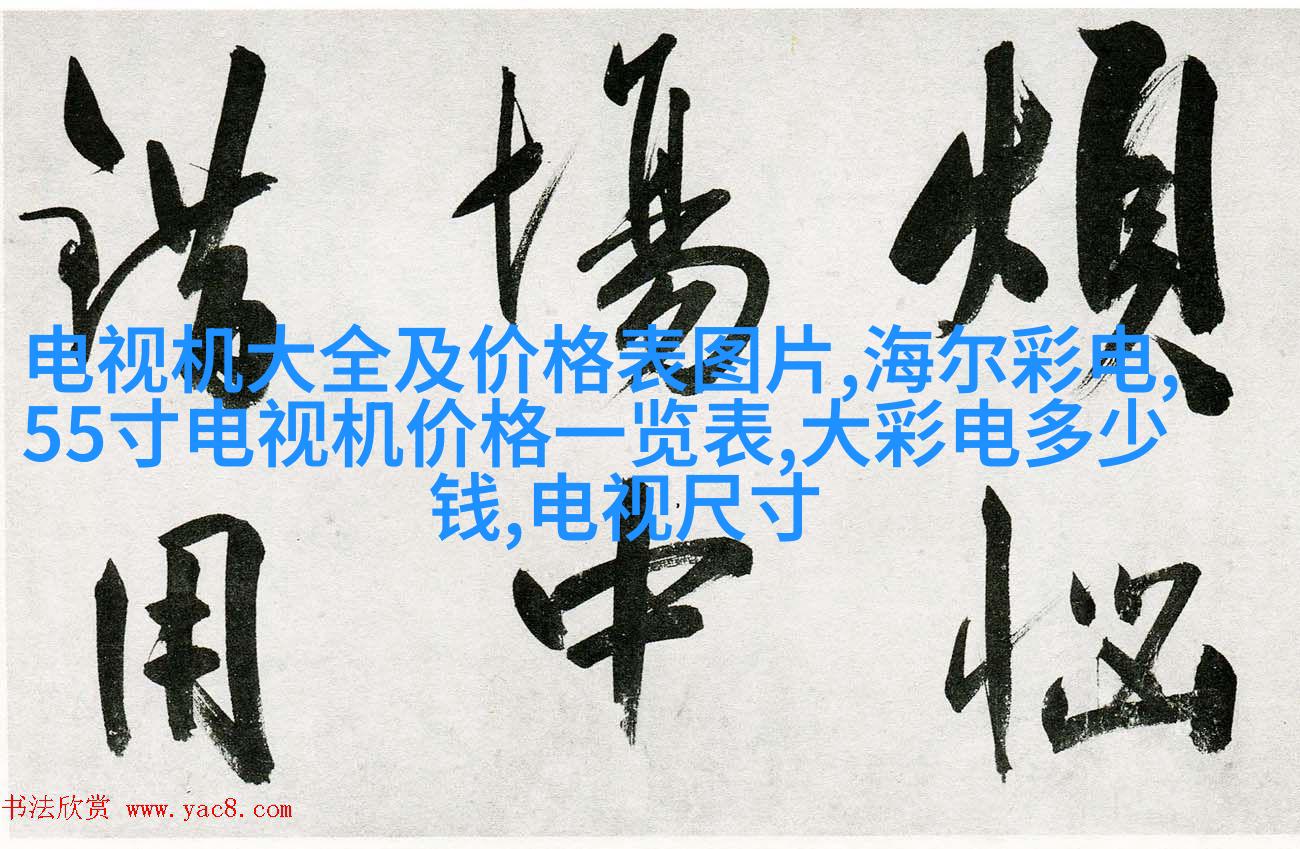 煩場錯
惱中用
电视机大全及价格表图片,海尔彩电,
55寸电视机价格一览表,大彩电多少
钱,电视尺寸
书法欣赏 www.yac8.com